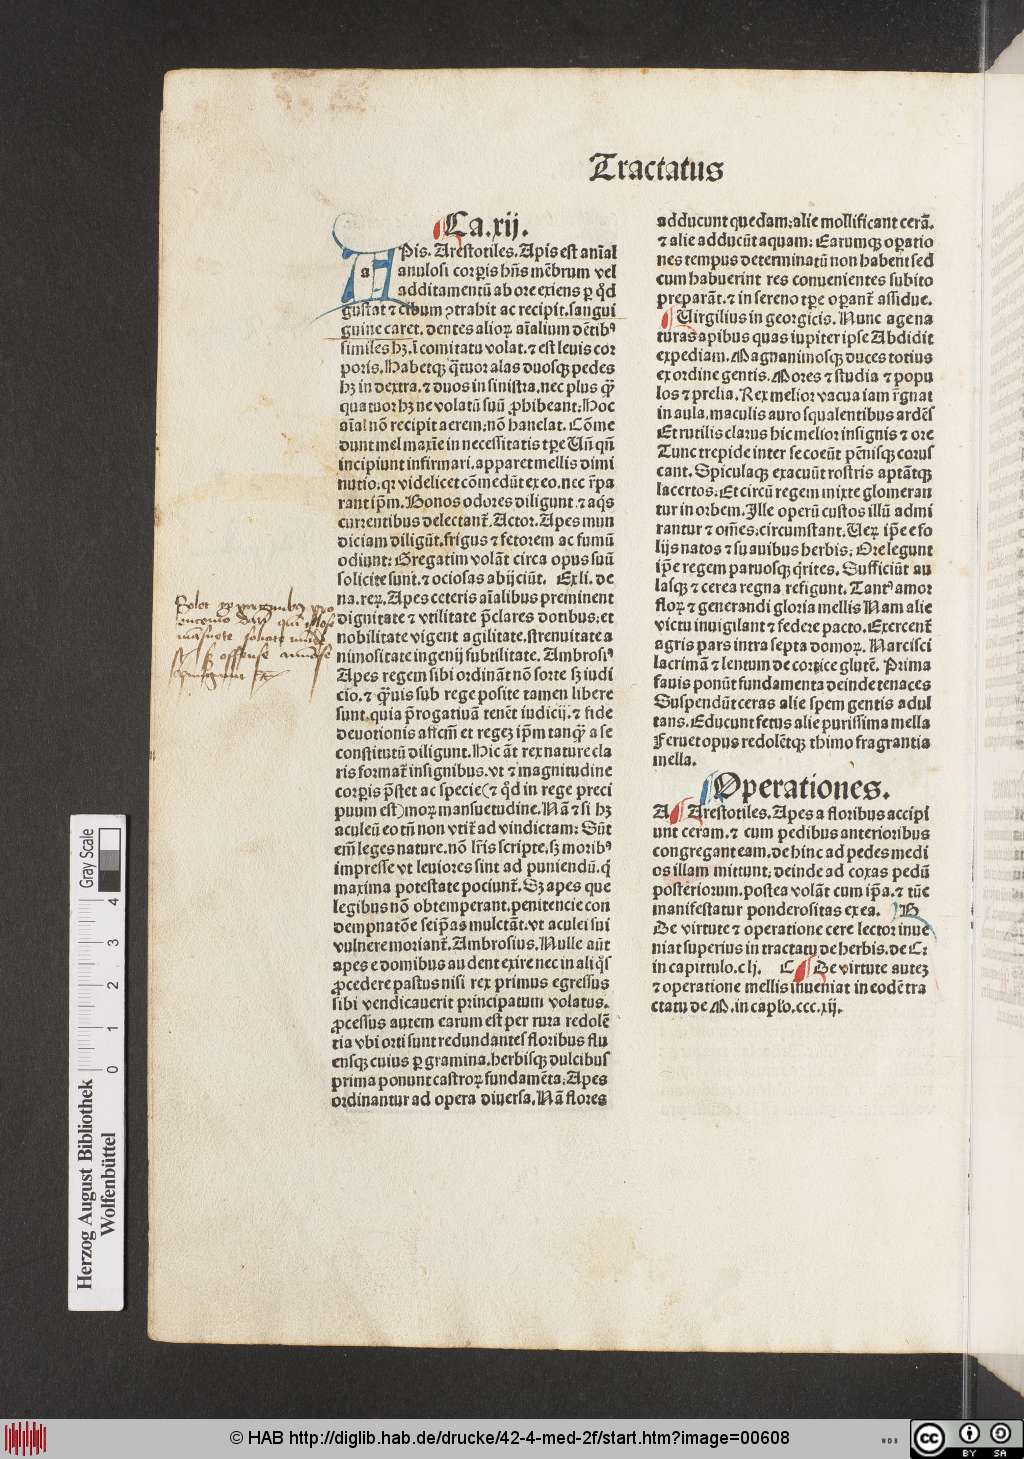 Tractatus
Ca.xij.
APis. Arestotiles. Apis est aniāl
anulosi corꝑis hn̄s mēbrum vel
additamentū ab ore exiens ꝑ qd̄
gustat ⁊ cibum ꝯtrahit ac recipit. sangui
guine caret. dentes alioꝝ aīalium dētibꝰ
similes hꝫ. ī comitatu volat. ⁊ est leuis cor
poris. Habetqꝫ q̄tuor alas duosqꝫ pedes
hꝫ in dextra. ⁊ duos in sinistra. nec plus qꝫ̄
quatuor hꝫ ne volatū suū ꝓhibeant: Hoc
aīal nō recipit aerem: nō hanelat. Cōme
dunt mel maxīe in necessitatis tꝑe Vn̄ qn̄
incipiunt infirmari. apparet mellis dimi
nutio. qꝛ videlicet cōmedūt ex eo. nec r̄pa
rant ip̄m. Bonos odores diligunt ⁊ aq̄s
currentibus delectant̄. Actor. Apes mun
diciam diligūt. frigus ⁊ fetorem ac fumū
odiunt: Gregatim volāt circa opus suū
solicite sunt. ⁊ ociosas abijciūt. Ex li. de
na. reꝝ. Apes ceteris aīalibus preminent
dignitate ⁊ vtilitate p̄clares dotibus: et
nobilitate vigent agilitate. strenuitate a
nimositate ingenij subtilitate. Ambrosiꝰ
Apes regem sibi ordināt nō sorte sꝫ iudi
cio. ⁊ qꝫ̄uis sub rege posite tamen libere
sunt. quia p̄rogatiuā tenēt iudicij. ⁊ fide
deuotionis affcm̄ et regeꝫ ip̄m tanqꝫ̄ a se
constitutū diligunt. Hic āt rex nature cla
ris format̄ insignibus. vt ⁊ magnitudine
corꝑis p̄stet ac specie(⁊ qd̄ in rege preci
puum est) moꝝ mansuetudine. Nā ⁊ si hꝫ
aculeū eo tn̄ non vtit̄ ad vindictam: Sūt
em̄ leges nature. nō lr̄is scripte. sꝫ moribꝰ
impresse vt leuiores sint ad puniendū. q̄
maxima potestate pociunt̄. Sꝫ apes que
legibus nō obtemperant. penitencie con
dempnatōe seip̄as mulctāt. vt aculei sui
vulnere moriant̄. Ambrosius. Nulle aūt
apes e domibus audent exire nec in aliq̄s
ꝓcedere pastus nisi rex primus egressus
sibi vendicauerit principatum volatus.
ꝓcessus autem earum est per rura redolē
tia vbi orti sunt redundantes floribus flu
ensqꝫ cuius ꝑ gramina. herbisqꝫ dulcibus
prima ponunt castroꝝ fundamēta: Apes
ordinantur ad opera diuersa. Nā flores
adducunt quedam: alie mollificant cerā.
⁊ alie adducūt aquam: Earumqꝫ oꝑatio
nes tempus determinatū non habent sed
cum habuerint res conuenientes subito
preparāt. ⁊ in sereno tꝑe oꝑant̄ assidue.
Virgilius in georgicis. Nunc age na
turas apibus quas iupiter ipse Abdidit
expediam. Magnanimosqꝫ duces totius
ex ordine gentis. Mores ⁊ studia ⁊ popu
los ⁊ prelia. Rex melior vacua iam r̄gnat
in aula. maculis auro squalentibus ardēs
Et rutilis clarus hic melior insignis ⁊ ore
Tunc trepide inter se coeūt pēnisqꝫ corus
cant. Spiculaqꝫ exacuūt rostris aptātqꝫ
lacertos: Et circū regem mixte glomeran
tur in orbem. Ille operū custos illū admi
rantur ⁊ om̄es. circumstant. Veꝝ ip̄e e fo
lijs natos ⁊ suauibus herbis: Ore legunt
ip̄e regem paruosqꝫ q̄rites. Sufficiūt au
lasqꝫ ⁊ cerea regna refigunt. Tantꝰ amor
floꝝ ⁊ generandi gloria mellis Nam alie
victu inuigilant ⁊ federe pacto. Exercent̄
agris pars intra septa domoꝝ. Narcisci
lacrimā ⁊ lentum de cortice glutē. Prima
fauis ponūt fundamenta deinde tenaces
Suspendūt ceras alie spem gentis adul
tans. Educunt fetus alie purissima mella
Feruet opus redolētqꝫ thimo fragrantia
mella.
Operationes.
A Arestotiles. Apes a floribus accipi
unt ceram. ⁊ cum pedibus anterioribus
congregant eam. de hinc ad pedes medi
os illam mittunt: deinde ad coxas pedū
posteriorum. postea volāt cum ip̄a. ⁊ tūc
manifestatur ponderositas ex ea. B
De virtute ⁊ operatione cere lector inue
niat superius in tractatu de herbis. de C:
in capittulo. clj. C De virtute auteꝫ
⁊ operatione mellis inueniat in eodē tra
ctatu de M. in caplo. ccc.xij.
Herzog August Bibliothek
Wolfenbüttel
0 1 2 3 4
Gray Scale
© HAB http://diglib.hab.de/drucke/42-4-med-2f/start.htm?image=00608
WDB
cc BY SA